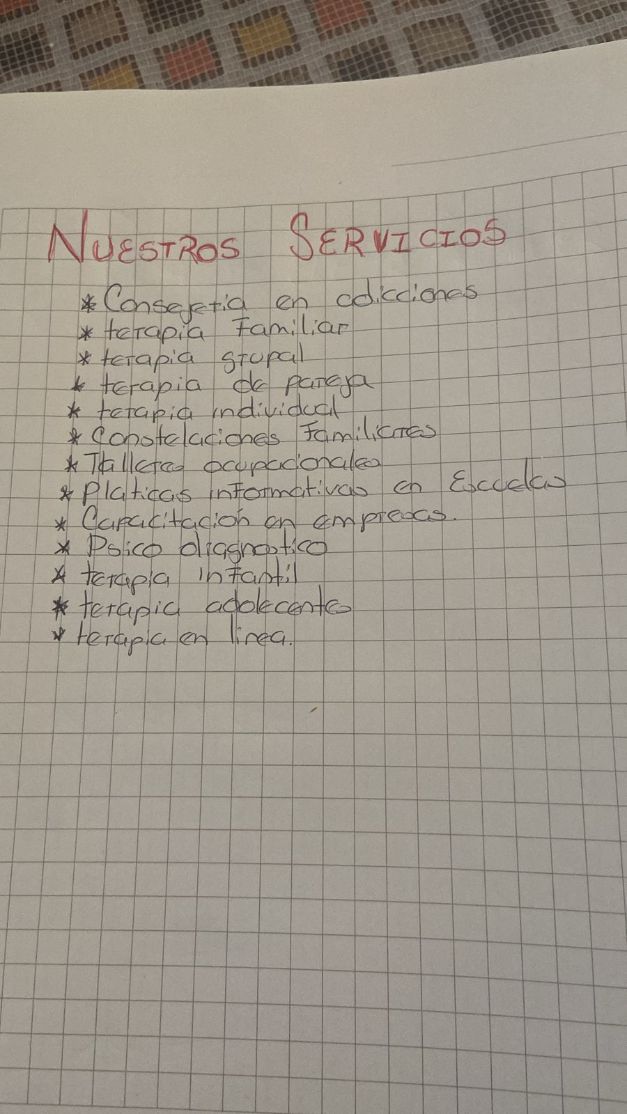 NUESTROS SERVICIOS
* Consejeria en adicciones
* terapia Familiar
* terapia grupal
* terapia de pareja
* terapia individual
* Constelaciones Familiares
* Talleres ocupacionales
* Platicas informativas en Escuelas
* Capacitacion en empresas.
* Psico diagnostico
* terapia infantil
* terapia adolecentes
* terapia en linea.